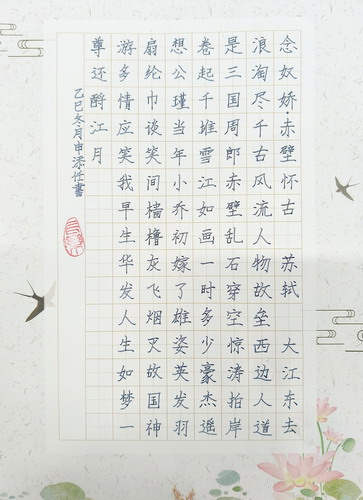 念奴娇·赤壁怀古 苏轼 大江东去
浪淘尽千古风流人物故垒西边人道
是三国周郎赤壁乱石穿空惊涛拍岸
卷起千堆雪江如画一时多少豪杰遥
想公瑾当年小乔初嫁了雄姿英发羽
扇纶巾谈笑间樯橹灰飞烟灭故国神
游多情应笑我早生华发人生如梦一
尊还酹江月
乙巳冬月申添任書